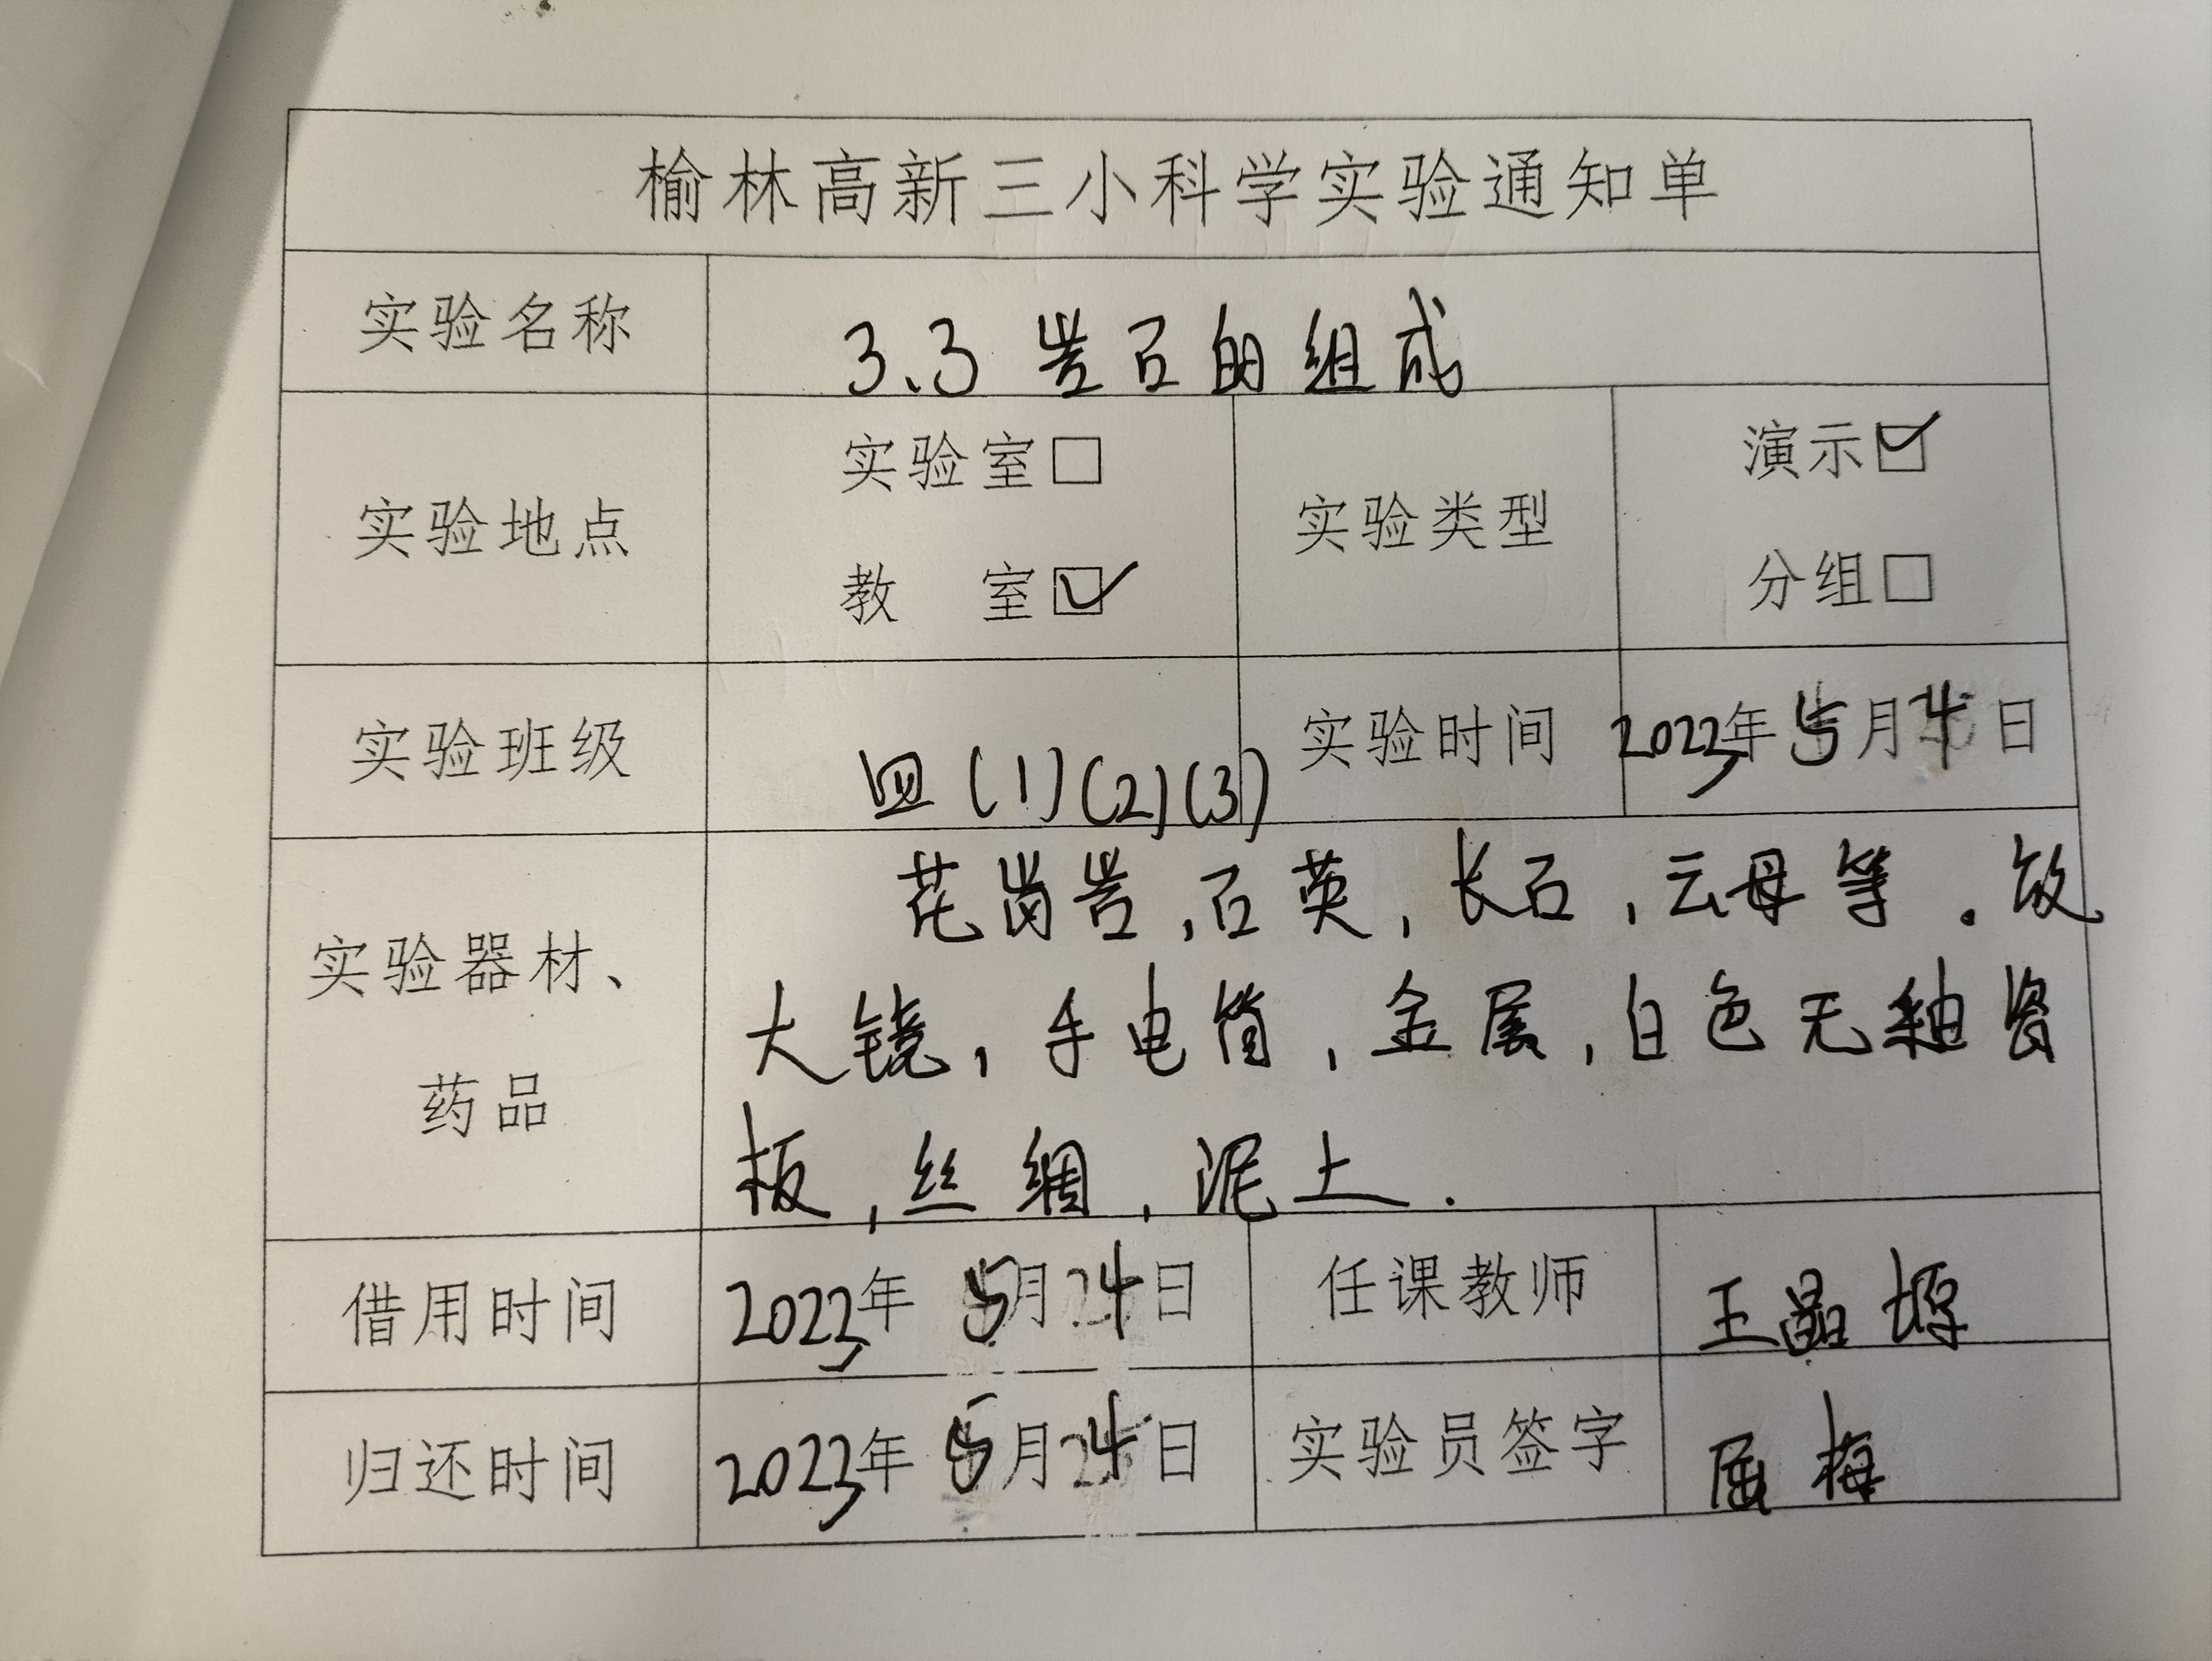 榆林高新三小科学实验通知单
实验名称 3.3 岩石的组成
实验地点 实验室□ 教 室☑ 实验类型 演示☑ 分组□
实验班级 四(1)(2)(3) 实验时间 2023年5月4日
实验器材、药品 花岗岩,石英,长石,云母等.放
大镜,手电筒,金属,白色无釉瓷
板,丝绸,泥土.
借用时间 2023年5月4日 任课教师 王晶
归还时间 2023年5月4日 实验员签字 屈梅